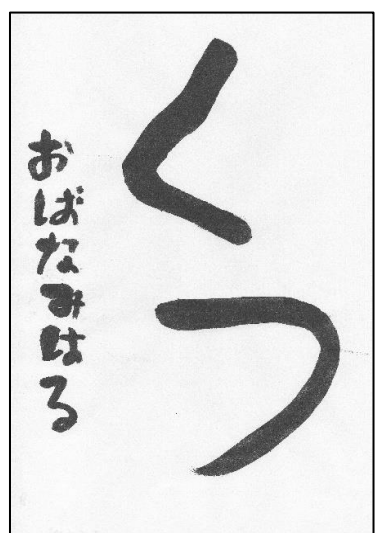 くつ
おばなみはる